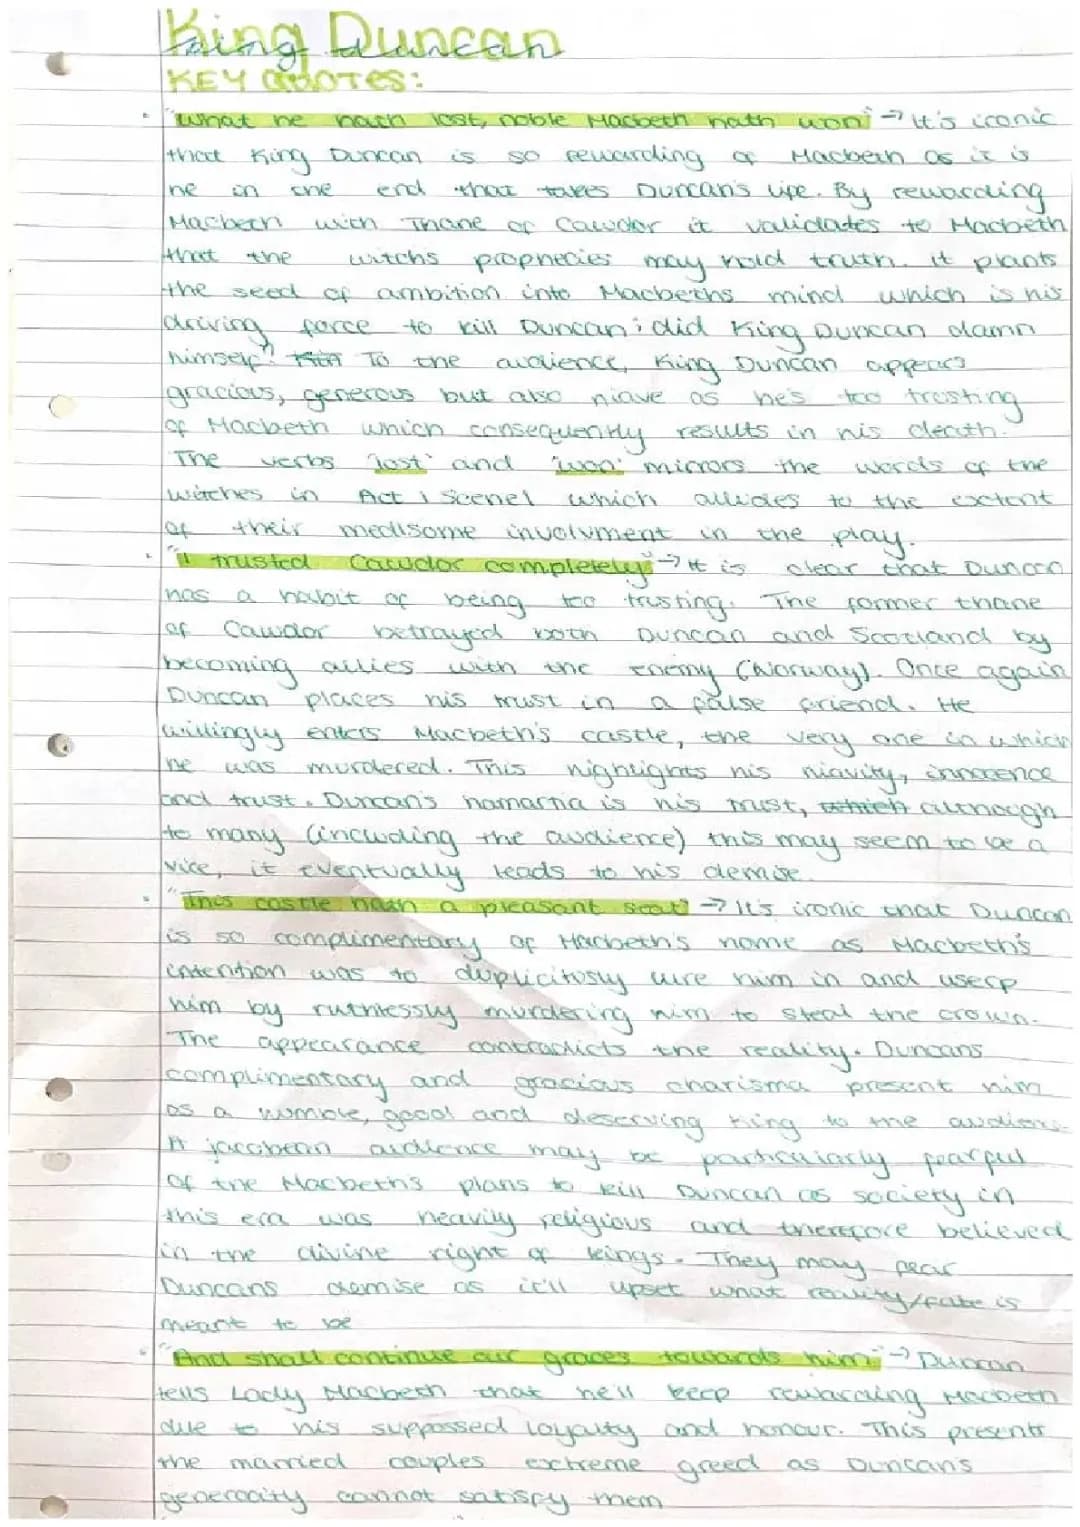 King Duncan
King Duncan
KEY QUOTES:
"What he hath lost, noble Macbeth hath won" → It's ironic
that King Duncan is so rewarding of Macbeth as it is
he in the end that takes Duncan's life. By rewarding
Macbeth with Thane of Cawdor it validates to Macbeth
that the witchs prophecies may hold truth. it plants
the seed of ambition into Macbeths mind which is his
driving force to kill Duncan; did King Duncan damn
himself? To the audience, King Duncan appears
gracious, generous but also niave as he's too trusting
of Macbeth which consequently results in his death.
The verbs 'lost' and 'won' mirrors the words of the
witches in Act 1 Scene 1 which alludes to the extent
of their medlsome involvment in the play.
"I trusted Cawdor completely" → It is clear that Duncan
has a habit of being too trusting. The former thane
of Cawdor betrayed both Duncan and Scotland by
becoming allies with the enemy (Norway). Once again
Duncan places his trust in a false friend. He
willingly enters Macbeth's castle, the very one in which
he was murdered. This highlights his niavity, innocence
and trust. Duncan's hamartia is his trust, which although
to many (including the audience) this may seem to be a
vice, it eventually leads to his demise.
"This castle hath a pleasant seat" → It's ironic that Duncan
is so complimentary of Macbeth's home as Macbeth's
intention was to duplicitously lure him in and userp
him by ruthlessly murdering him to steal the crown.
The appearance contradicts the reality. Duncans
complimentary and gracious charisma present him
as a humble, good and deserving king to the
A jacobean audience may be particularly fearful
of the Macbeths plans to kill Duncan as society in
this era was heavily religious and therefore believed
in the divine right of kings. They may fear
Duncans demise as it'll upset what reality/fate is
meant to be
"And shall continue our graces towards him" → Duncan
tells Lady Macbeth that he'll keep rewarding Macbeth
due to his suppossed loyalty and honour. This presents
the married couples extreme greed as Duncan's
generocity cannot satisfy them